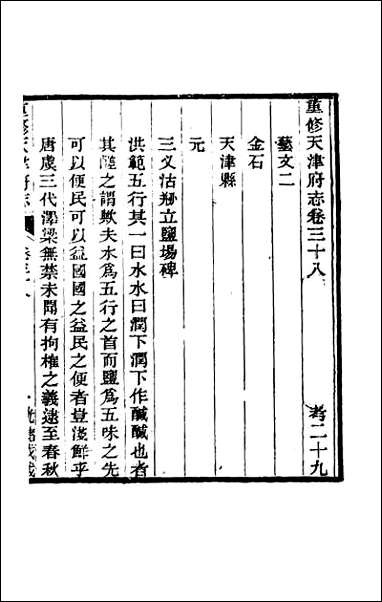 重修天津府志卷三十八　考二十九
藝文二
金石
天津縣
元
三义沽剙立鹽場碑
洪範五行其一曰水水曰潤下潤下作醎醎也者
其鹽之謂歟夫水爲五行之首而鹽爲五味之先
可以便民可以益國國之益民之便者豈淺鮮乎
唐虞三代澤梁無禁未聞有拘榷之義逮至春秋
重修天津府志